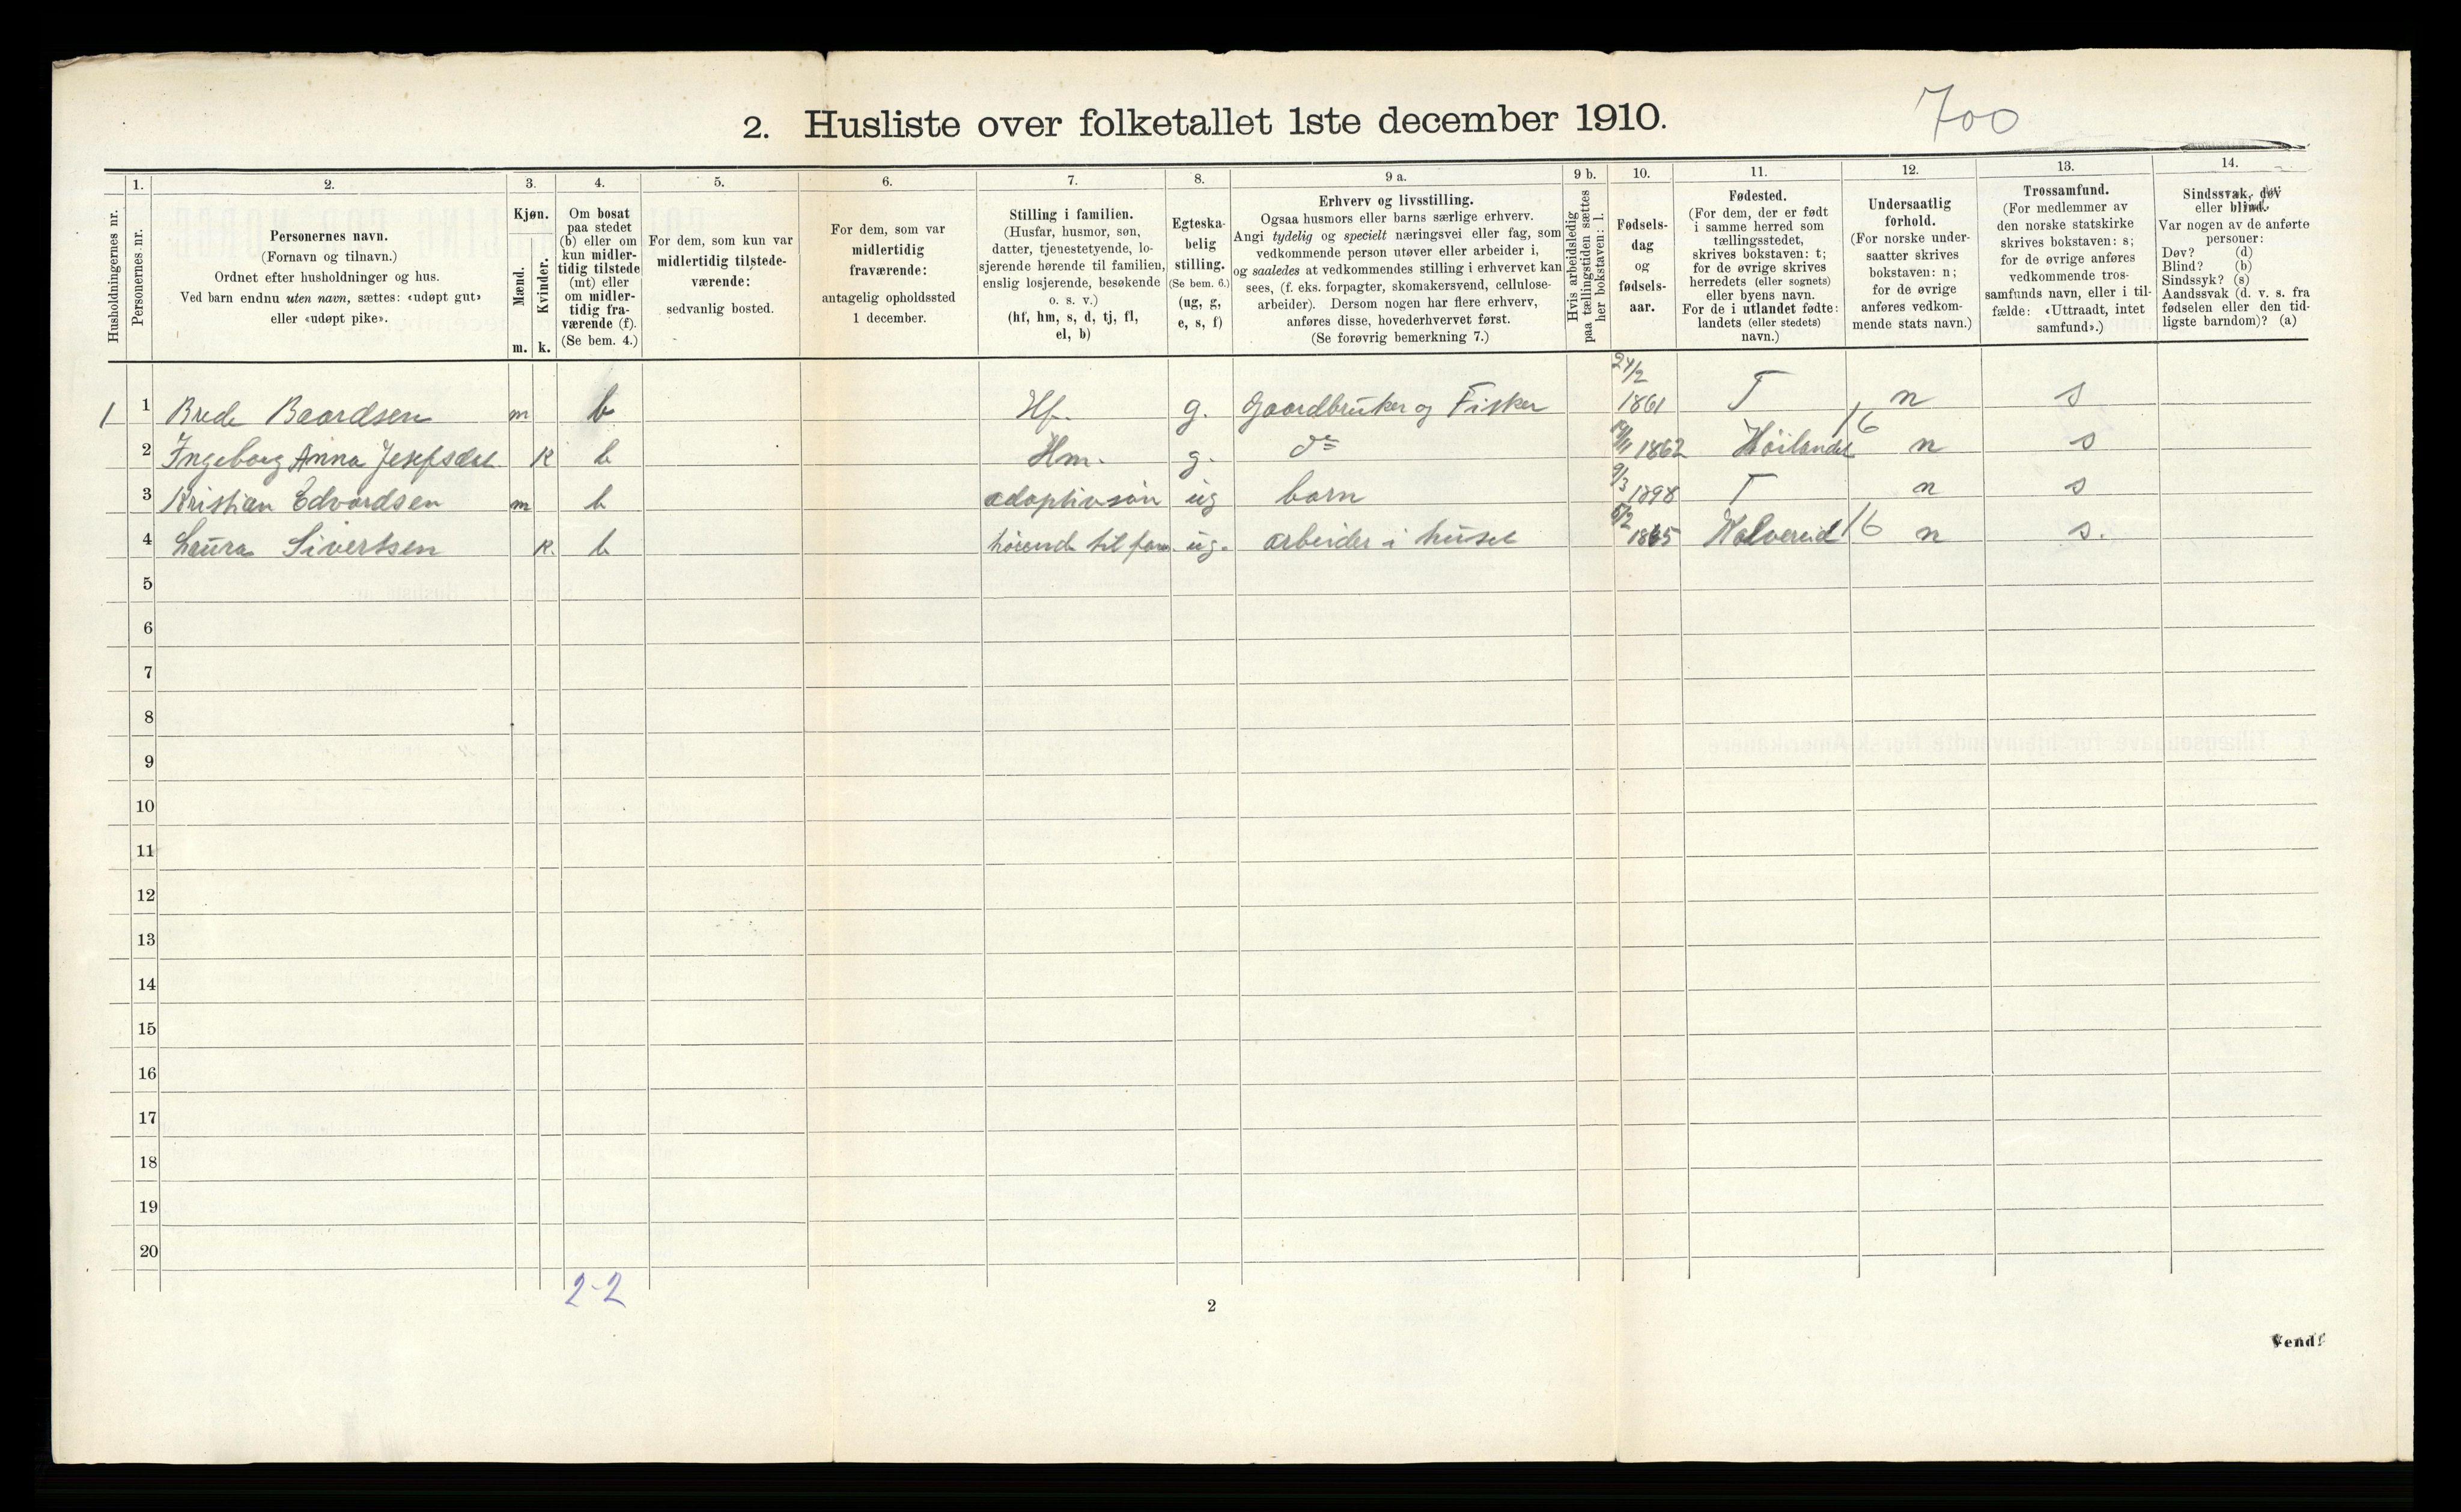 700
2. Husliste over folketallet 1ste december 1910.
Husholdningernes nr.
1.
Personernes nr.
2.
Personernes navn.
(Fornavn og tilnavn.)
Ordnet efter husholdninger og hus.
Ved barn endnu uten navn, sættes: «udøpt gut»
eller «udøpt pike».
3.
Kjøn.
Mænd.
Kvinder.
m. k.
4.
Om bosat
paa stedet
(b) eller om
kun midler-
tidig tilstede
(mt) eller
om midler-
tidig fra-
værende (f).
(Se bem. 4.)
5.
For dem, som kun var
midlertidig tilstede-
værende:
sedvanlig bosted.
6.
For dem, som var
midlertidig
fraværende:
antagelig opholdssted
1 december.
7.
Stilling i familien.
(Husfar, husmor, søn,
datter, tjenestetyende, lo-
sjerende hørende til familien,
enslig losjerende, besøkende
o. s. v.)
(hf, hm, s, d, tj, fl,
el, b)
8.
Egteska-
belig
stilling.
(Se bem. 6.)
(ug, g,
e, s, f)
9 a.
Erhverv og livsstilling.
Ogsaa husmors eller barns særlige erhverv.
Angi tydelig og specielt næringsvei eller fag, som
vedkommende person utøver eller arbeider i,
og saaledes at vedkommendes stilling i erhvervet kan
sees, (f. eks. forpagter, skomakersvend, cellulose-
arbeider). Dersom nogen har flere erhverv,
anføres disse, hovederhvervet først.
(Se forøvrig bemerkning 7.)
9 b.
Hvis arbeidsledig
paa tællingstiden sættes
her bokstaven: l.
10.
Fødsels-
dag
og
fødsels-
aar.
11.
Fødested.
(For dem, der er født
i samme herred som
tællingsstedet,
skrives bokstaven: t;
for de øvrige skrives
herredets (eller sognets)
eller byens navn.
For de i utlandet fødte:
landets (eller stedets)
navn.)
12.
Undersaatlig
forhold.
(For norske under-
saatter skrives
bokstaven: n;
for de øvrige
anføres vedkom-
mende stats navn.)
13.
Trossamfund.
(For medlemmer av
den norske statskirke
skrives bokstaven: s;
for de øvrige anføres
vedkommende tros-
samfunds navn, eller i til-
fælde: «Uttraadt, intet
samfund».)
14.
Sindssvak, døv
eller blind.
Var nogen av de anførte
personer:
Døv? (d)
Blind? (b)
Sindssyk? (s)
Aandssvak (d. v. s. fra
fødselen eller den tid-
ligste barndom)? (a)
1 1 Brede Baardsen m b Hf. g. Gaardbruker og Fisker 24/2 1861 T n s
2 Ingeborg Anna k b Hm. g. do 1862 Høilandet 16 n s
3 Kristian Edvardsen m b adoptivsøn ug barn 9/3 1898 T n s
4 Laura Sivertsen k. b hørende til fam. ug. arbeider i huset 5/2 1865 Kolvereid 16 n s.
5
6
7
8
9
10
11
12
13
14
15
16
17
18
19
20
2-2
2
Vend!